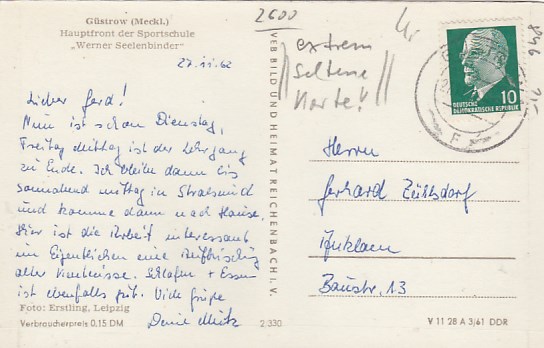 Güstrow (Meckl.)
Hauptfront der Sportschule
„Werner Seelenbinder"
27.11.62
Lieber Gerd!
Nun ist schon Dienstag,
Freitag Mittag ist der Lehrgang
zu Ende. Ich bleibe dann bis
Sonnabend mittag in Stralsund
und komme dann nach Hause.
Hier ist die Arbeit interessant
im Eigentlichen eine Auffrischung
alter Kenntnisse. Schlafen + Essen
ist ebenfalls gut. Viele Grüße
Foto: Erstling, Leipzig
Verbraucherpreis 0,15 DM
2330
VEB BILD UND HEIMAT REICHENBACH I. V.
2600
extrem
seltene
Karte!
DEUTSCHE
DEMOKRATISCHE REPUBLIK
10
Herrn
Gerhard
Anklam
Baustr. 13
V 11 28 A 3/61 DDR